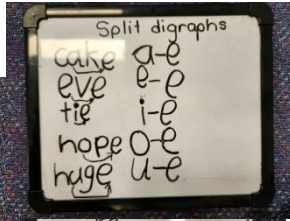 Split digraphs
cake a-e
eve e-e
tie i-e
hope o-e
huge u-e